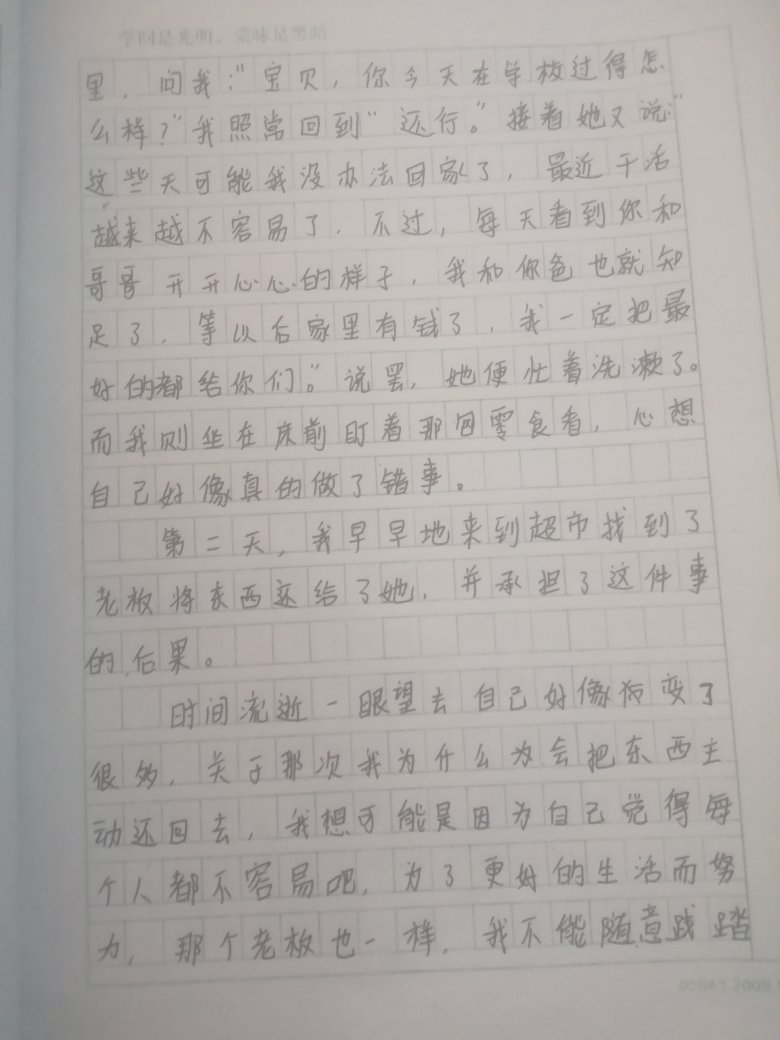 学问是光明，蒙昧是黑暗
里，问我："宝贝，你今天在学校过得怎
么样？"我照常回到"还行。"接着她又说："
这些天可能我没办法回家了，最近干活
越来越不容易了，不过，每天看到你和
哥哥开开心心的样子，我和你爸也就知
足了，等以后家里有钱了，我一定把最
好的都给你们。"说罢，她便忙着洗漱了。
而我则坐在床前盯着那包零食看，心想
自己好像真的做了错事。
第二天，我早早地来到超市找到了
老板将东西还给了她，并承担了这件事
的后果。
时间流逝一眼望去自己好像改变了
很多，关于那次我为什么为会把东西主
动还回去，我想可能是因为自己觉得每
个人都不容易吧，为了更好的生活而努
力，那个老板也一样，我不能随意践踏
05643 2009